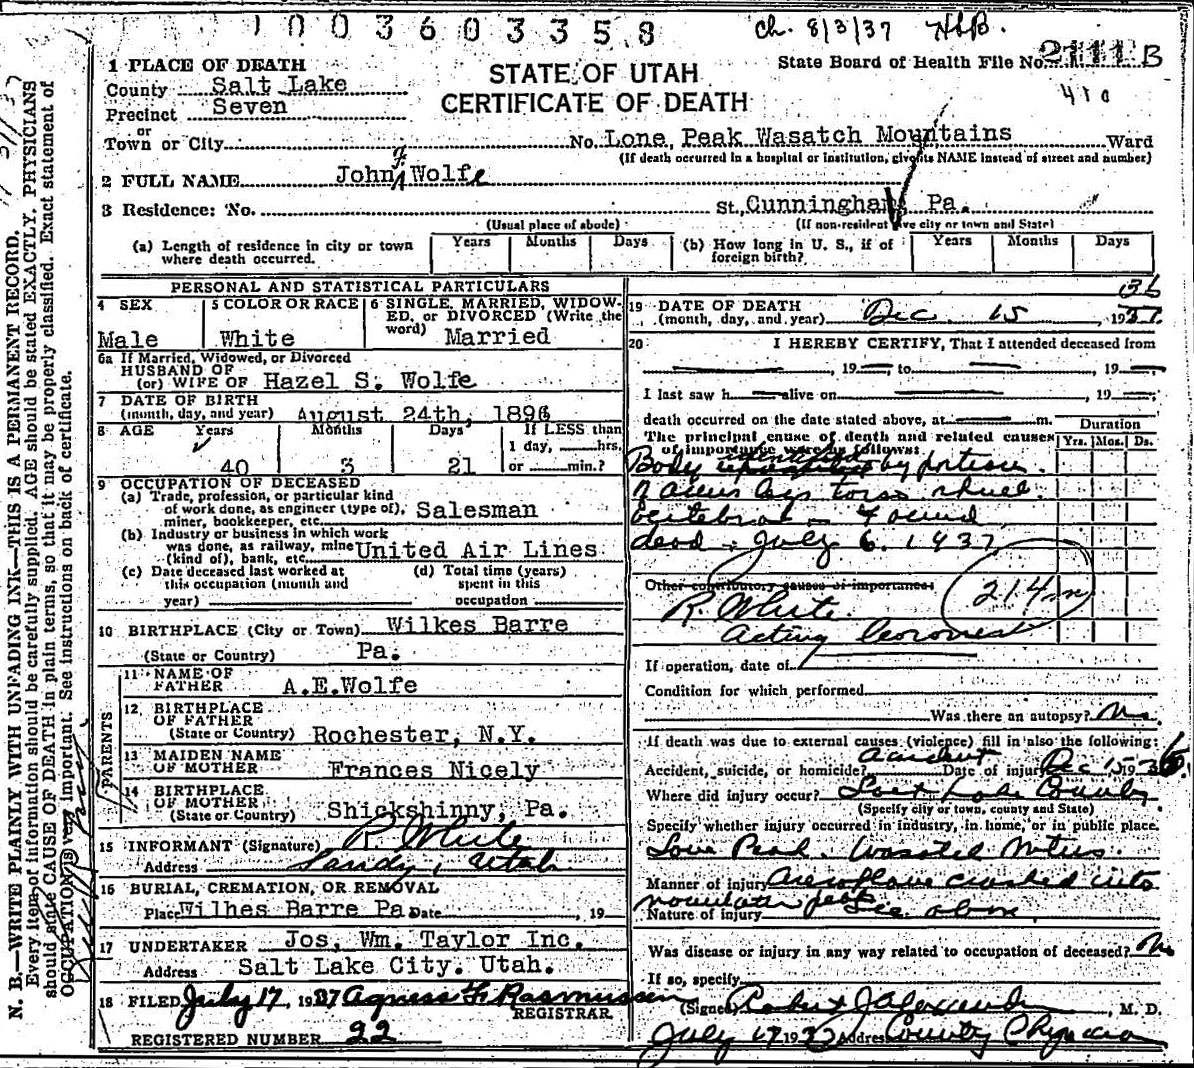 1003603358
ch. 8/3/37 HLB.
1 PLACE OF DEATH
County Salt Lake
Precinct Seven
STATE OF UTAH
CERTIFICATE OF DEATH
State Board of Health File No. 2111 B
410
or
Town or City No. Lone Peak Wasatch Mountains Ward
(If death occurred in a hospital or institution, give its NAME instead of street and number)
2 FULL NAME John Wolfe
3 Residence: No. St., Cunningham, Pa.
(Usual place of abode) (If non-resident give city or town and State)
(a) Length of residence in city or town where death occurred. Years Months Days
(b) How long in U. S., if of foreign birth? Years Months Days
PERSONAL AND STATISTICAL PARTICULARS
4 SEX
Male
5 COLOR OR RACE
White
6 SINGLE, MARRIED, WIDOW-
ED, or DIVORCED (Write the
word) Married
6a If Married, Widowed, or Divorced
HUSBAND OF
(or) WIFE OF Hazel S. Wolfe
7 DATE OF BIRTH
(month, day, and year) August 24th, 1896
8 AGE Years Months Days If LESS than
1 day, hrs.
40 3 21 or min.?
9 OCCUPATION OF DECEASED
(a) Trade, profession, or particular kind
of work done, as engineer (type of),
miner, bookkeeper, etc. Salesman
(b) Industry or business in which work
was done, as railway, mine
(kind of), bank, etc. United Air Lines
(c) Date deceased last worked at
this occupation (month and
year)
(d) Total time (years)
spent in this
occupation
10 BIRTHPLACE (City or Town) Wilkes Barre
(State or Country) Pa.
PARENTS
11 NAME OF
FATHER A.E.Wolfe
12 BIRTHPLACE
OF FATHER
(State or Country) Rochester, N.Y.
13 MAIDEN NAME
OF MOTHER Frances Nicely
14 BIRTHPLACE
OF MOTHER
(State or Country) Shickshinny, Pa.
15 INFORMANT (Signature) R. White
Address Sandy, Utah
16 BURIAL, CREMATION, OR REMOVAL
Place Wilhes Barre Pa. Date , 19
17 UNDERTAKER Jos. Wm. Taylor Inc.
Address Salt Lake City. Utah.
18 FILED July 17, 1937 Agness F. Rasmussen
REGISTRAR.
REGISTERED NUMBER 22
19 DATE OF DEATH
(month, day, and year) Dec 15 , 1936
20 I HEREBY CERTIFY, That I attended deceased from
, 19 to , 19
I last saw h alive on , 19
death occurred on the date stated above, at m.
The principal cause of death and related causes
of importance were as follows:
Duration
Yrs. Mos. Ds.
Body by portions
legs torso
vertebrae - Found
dead - July 6. 1937
Other contributory causes of importance:
214
R. White.
Acting Coroner
If operation, date of
Condition for which performed
Was there an autopsy? No
If death was due to external causes (violence) fill in also the following:
Accident, suicide, or homicide? Accident Date of injury Dec 15 1936
Where did injury occur? Salt Lake County
(Specify city or town, county and State)
Specify whether injury occurred in industry, in home, or in public place.
Lone Peak. Wasatch Mtns.
Manner of injury Aeroplane crashed into
mountain peak
Nature of injury See above
Was disease or injury in any way related to occupation of deceased? No
If so, specify
(Signed) Robert J Alexander , M. D.
July 17 1937 Address County Physician
N. B.—WRITE PLAINLY WITH UNFADING INK—THIS IS A PERMANENT RECORD.
Every item of information should be carefully supplied. AGE should be stated EXACTLY. PHYSICIANS
should state CAUSE OF DEATH in plain terms, so that it may be properly classified. Exact statement of
OCCUPATION is very important. See instructions on back of certificate.